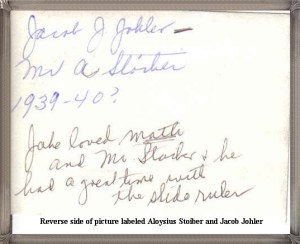 Jacob J Johler —
Mr A Stoiber
1939-40?
Jake loved math
and Mr Stoiber & he
had a great time with
the slide ruler
Reverse side of picture labeled Aloysius Stoiber and Jacob Johler